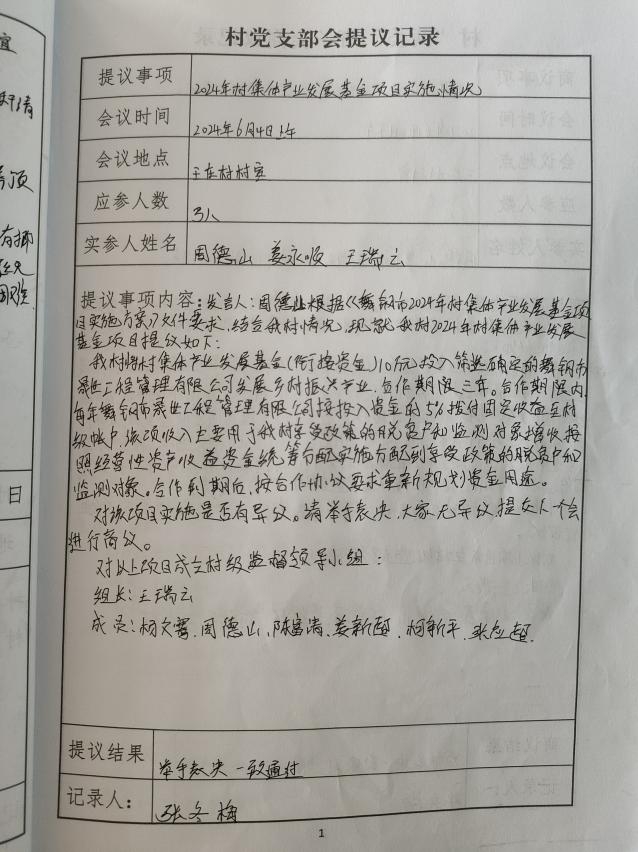 村党支部会提议记录
提议事项 2024年村集体产业发展基金项目实施情况
会议时间 2024年6月4日上午
会议地点 王在村村室
应参人数 3人
实参人姓名 周德山 姜永顺 王瑞云
提议事项内容：发言人：周德山根据《舞钢市2024年村集体产业发展基金项
目实施方案》文件要求，结合我村情况，现就我村2024年村集体产业发展
基金项目提议如下：
我村将村集体产业发展基金(衔接资金)10万元投入筛选确定的舞钢市
晟业工程管理有限公司发展乡村振兴产业，合作期限三年。合作期限内，
每年舞钢市晟业工程管理有限公司按投入资金的5%拨付固定收益至村
级帐户，该项收入主要用于我村享受政策的脱贫户和监测对象增收，按
照经营性资产收益资金统筹分配实施分配到享受政策的脱贫户和
监测对象。合作到期后，按合作协议要求重新规划资金用途。
对该项目实施是否有异议。请举手表决，大家无异议，提交下个会
进行商议。
对以上项目成立村级监督领导小组：
组长：王瑞云
成员：杨文霄、周德山、陈富清、姜新超、柯新平、张应超.
提议结果 举手表决 一致通过
记录人： 张冬梅
1
日